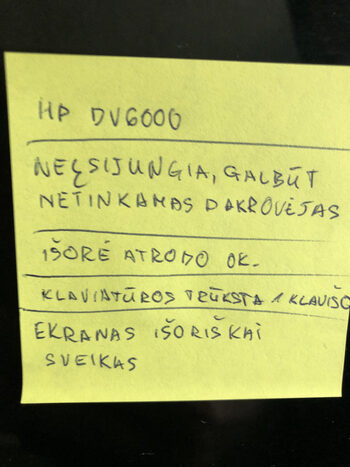 HP DV6000
NEĮSIJUNGIA, GALBŪT
NETINKAMAS DAKROVĖJAS
IŠORĖ ATRODO OK.
KLAVIATŪROS TRŪKSTA 1 KLAVIŠO
EKRANAS IŠORIŠKAI
SVEIKAS